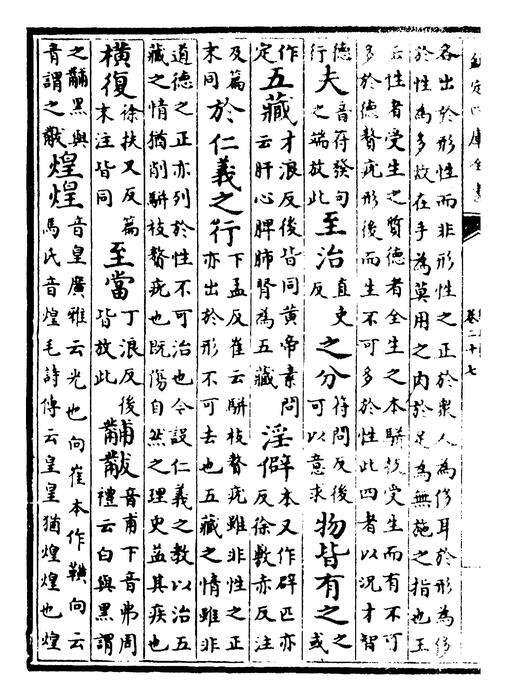 欽定四庫全書
卷二十七
各出於形性而非形性之正於衆人為侈耳於形為侈
於性為多故在手為莫用之肉於足為無施之指也王
云性者受生之質德者全生之本駢枝受生而有不可
多於德贅疣形後而生不可多於性此四者以況才智
德行夫音符發句之端放此至治直吏反之分符問反後可以意求物皆有之之或
作定五藏才浪反後皆同黄帝素問云肝心脾肺腎為五藏淫僻本又作辟匹亦反徐敷亦反注
及篇末同於仁義之行下孟反崔云駢枝贅疣雖非性之正亦出於形不可去也五藏之情雖非
道德之正亦列於性不可治也今設仁義之教以治五
藏之情猶削駢枝贅疣也既傷自然之理更益其疾也
横復徐扶又反篇末注皆同至當丁浪反後皆放此黼黻音甫下音弗周禮云白與黑謂
之黼黑與青謂之黻煌煌音皇廣雅云光也向崔本作向云馬氏音煌毛詩傳云皇皇猶煌煌也煌